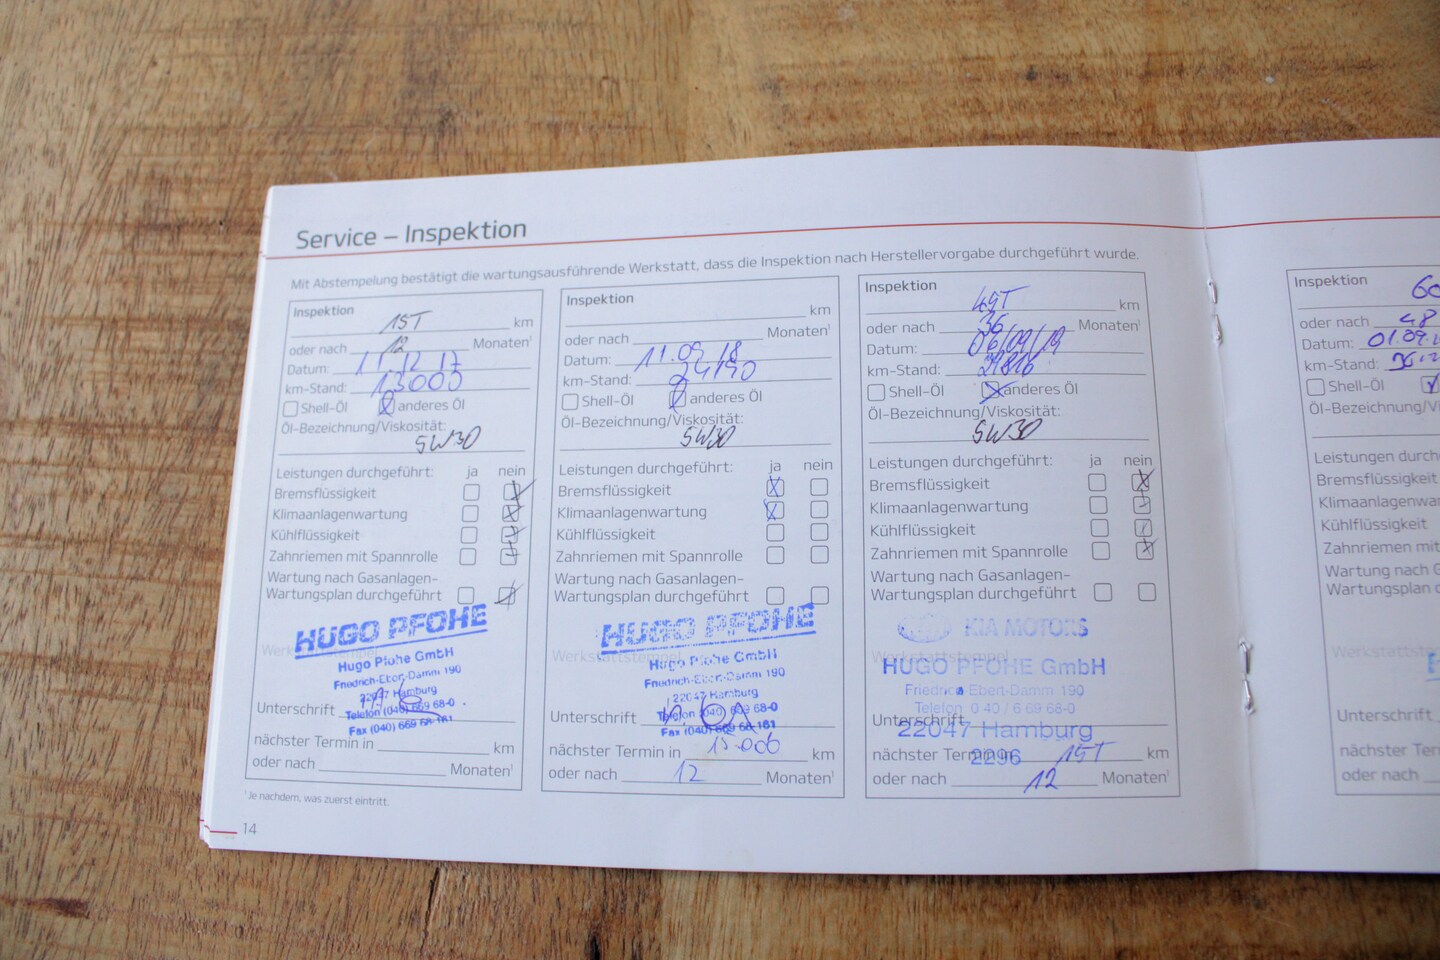 Service – Inspektion
Mit Abstempelung bestätigt die wartungsausführende Werkstatt, dass die Inspektion nach Herstellervorgabe durchgeführt wurde.
Inspektion
15T km
oder nach 12 Monaten¹
Datum: 11.12.17
km-Stand: 13000
Shell-Öl anderes Öl
Öl-Bezeichnung/Viskosität:
5W30
Leistungen durchgeführt: ja nein
Bremsflüssigkeit
Klimaanlagenwartung
Kühlflüssigkeit
Zahnriemen mit Spannrolle
Wartung nach Gasanlagen-
Wartungsplan durchgeführt
HUGO PFOHE
Werkstattstempel
Hugo Pfohe GmbH
Friedrich-Ebert-Damm 190
22047 Hamburg
Unterschrift Telefon (040) 669 68-0
Fax (040) 669 68-161
nächster Termin in km
oder nach Monaten¹
Inspektion
km
oder nach Monaten¹
Datum: 11.09.18
km-Stand: 24190
Shell-Öl anderes Öl
Öl-Bezeichnung/Viskosität:
5W30
Leistungen durchgeführt: ja nein
Bremsflüssigkeit
Klimaanlagenwartung
Kühlflüssigkeit
Zahnriemen mit Spannrolle
Wartung nach Gasanlagen-
Wartungsplan durchgeführt
HUGO PFOHE
Werkstattstempel
Hugo Pfohe GmbH
Friedrich-Ebert-Damm 190
22047 Hamburg
Unterschrift Telefon (040) 669 68-0
Fax (040) 669 68-161
nächster Termin in 15.000 km
oder nach 12 Monaten¹
Inspektion
45T km
oder nach 36 Monaten¹
Datum: 06/09/19
km-Stand:
Shell-Öl anderes Öl
Öl-Bezeichnung/Viskosität:
5W30
Leistungen durchgeführt: ja nein
Bremsflüssigkeit
Klimaanlagenwartung
Kühlflüssigkeit
Zahnriemen mit Spannrolle
Wartung nach Gasanlagen-
Wartungsplan durchgeführt
KIA MOTORS
Werkstattstempel
HUGO PFOHE GmbH
Friedrich Ebert-Damm 190
Telefon 0 40 / 6 69 68-0
Unterschrift
22047 Hamburg
nächster Termin in 15T km
2296
oder nach 12 Monaten¹
¹Je nachdem, was zuerst eintritt.
14
Inspektion 60
oder nach 48
Datum: 01.09.
km-Stand:
Shell-Öl
Öl-Bezeichnung/Visk
Leistungen durchge
Bremsflüssigkeit
Klimaanlagenwar
Kühlflüssigkeit
Zahnriemen mit
Wartung nach G
Wartungsplan d
Werkstattste
Unterschrift
nächster Term
oder nach